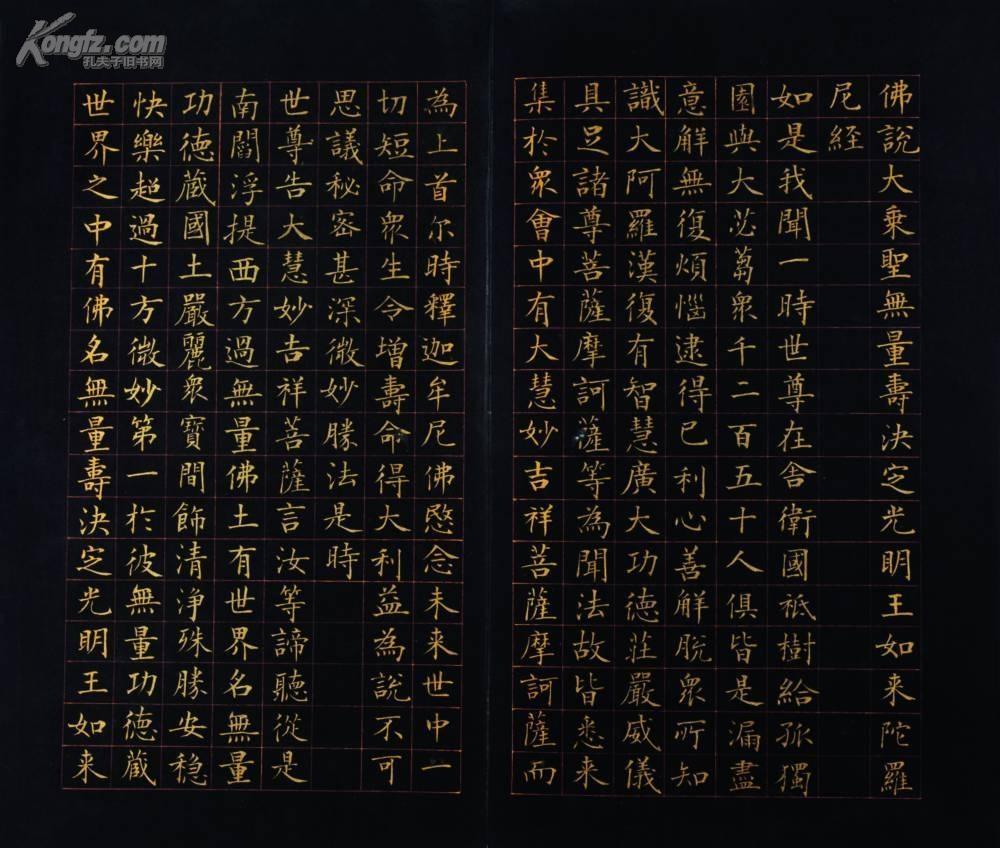 Kongfz.com
孔夫子旧书网
佛說大乘聖無量壽決定光明王如来陀羅
尼經
如是我聞一時世尊在舍衛國祇樹給孤獨
園與大苾蒭衆千二百五十人俱皆是漏盡
意解無復煩惱逮得己利心善解脫衆所知
識大阿羅漢復有智慧廣大功德莊嚴威儀
具足諸尊菩薩摩訶薩等為聞法故皆悉来
集於衆會中有大慧妙吉祥菩薩摩訶薩而
為上首尔時釋迦牟尼佛愍念未来世中一
切短命衆生令增壽命得大利益為說不可
思議秘密甚深微妙勝法是時
世尊告大慧妙吉祥菩薩言汝等諦聽從是
南閻浮提西方過無量佛土有世界名無量
功德藏國土嚴麗衆寶間飾清浄殊勝安稳
快樂超過十方微妙第一於彼無量功德藏
世界之中有佛名無量壽決定光明王如来